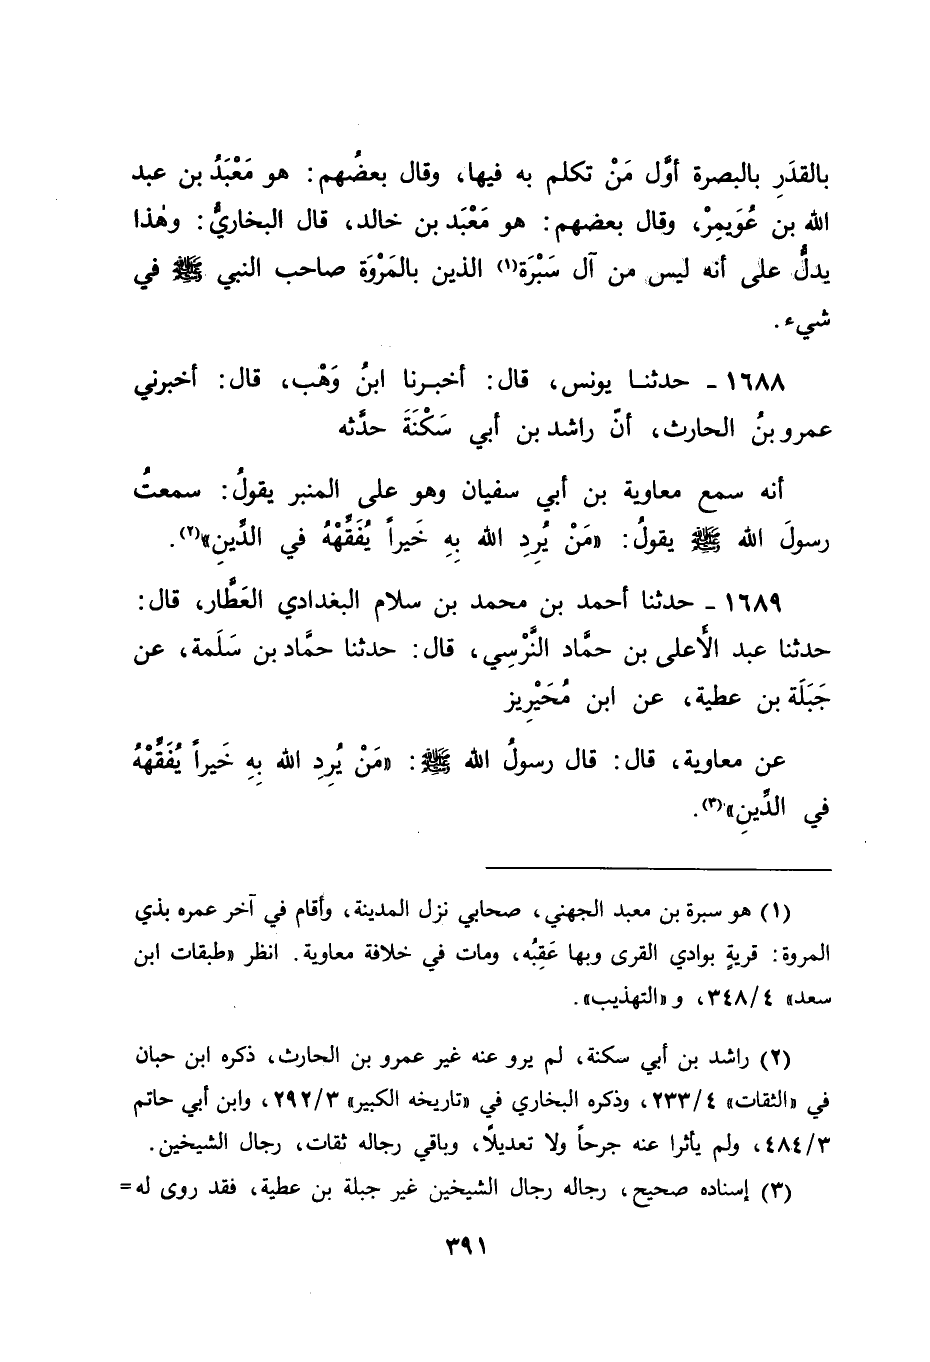 بالقدَرِ بالبصرة أوَّل مَنْ تكلم به فيها، وقال بعضُهم: هو مَعْبَدُ بن عبد
الله بن عُوَيمِرْ، وقال بعضهم: هو مَعْبَد بن خالد، قال البخاريُّ: وهٰذا
يدلُّ على أنه ليس من آل سَبْرَة(١) الذين بالمَرْوَة صاحب النبي ﷺ في
شيء.
١٦٨٨ ـ حدثنا يونس، قال: أخبرنا ابنُ وَهْب، قال: أخبرني
عمرو بنُ الحارث، أنَّ راشد بن أبي سَكْنَةَ حدَّثه
أنه سمع معاوية بن أبي سفيان وهو على المنبر يقولُ: سمعتُ
رسولَ الله ﷺ يقولُ: «مَنْ يُرِدِ الله بِهِ خَيراً يُفَقِّهْهُ في الدِّينِ»(٢).
١٦٨٩ ـ حدثنا أحمد بن محمد بن سلام البغدادي العَطَّار، قال:
حدثنا عبد الأَعلى بن حمَّاد النَّرْسِي، قال: حدثنا حمَّاد بن سَلَمة، عن
جَبَلَة بن عطية، عن ابن مُحَيْرِيز
عن معاوية، قال: قال رسولُ الله ﷺ: «مَنْ يُرِدِ الله بِهِ خَيراً يُفَقِّهْهُ
في الدِّينِ»(٣).
(١) هو سبرة بن معبد الجهني، صحابي نزل المدينة، وأقام في آخر عمره بذي
المروة: قريةٍ بوادي القرى وبها عَقِبُه، ومات في خلافة معاوية. انظر «طبقات ابن
سعد» ٣٤٨/٤، و«التهذيب».
(٢) راشد بن أبي سكنة، لم يرو عنه غير عمرو بن الحارث، ذكره ابن حبان
في «الثقات» ٢٣٣/٤، وذكره البخاري في «تاريخه الكبير» ٢٩٢/٣، وابن أبي حاتم
٤٨٤/٣، ولم يأثرا عنه جرحاً ولا تعديلًا، وباقي رجاله ثقات، رجال الشيخين.
(٣) إسناده صحيح، رجاله رجال الشيخين غير جبلة بن عطية، فقد روى له=
٣٩١